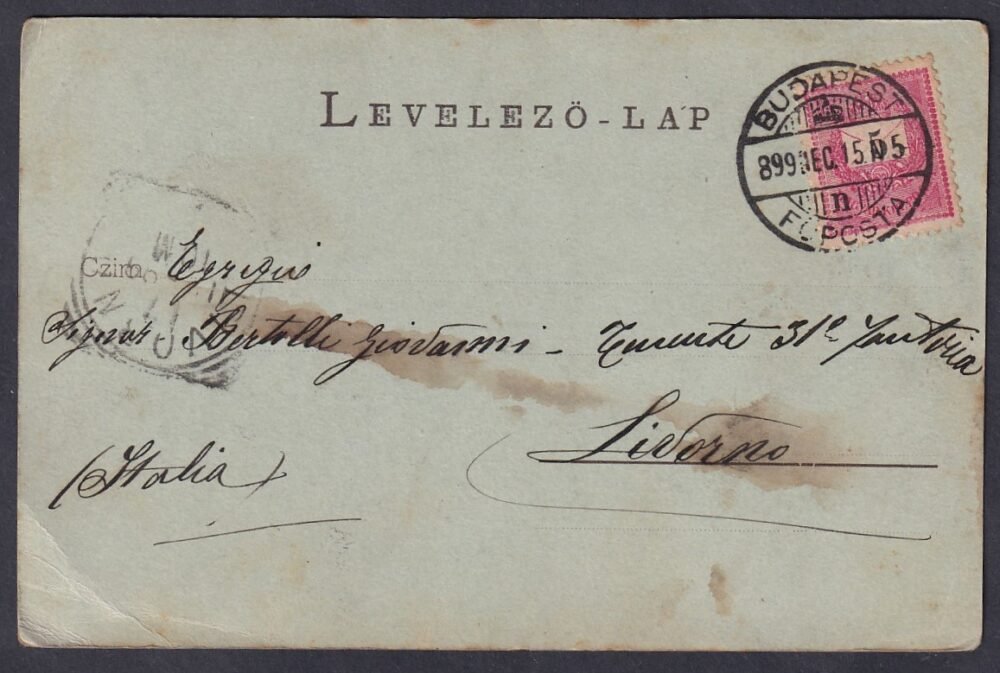 LEVELEZŐ-LAP
BUDAPEST
899 DEC. 15. N 5
n
FŐPOSTA
5
Czim Egregio
Signor Bertolli Giovanni - Tenente 31º Fanteria
Livorno
(Italia)